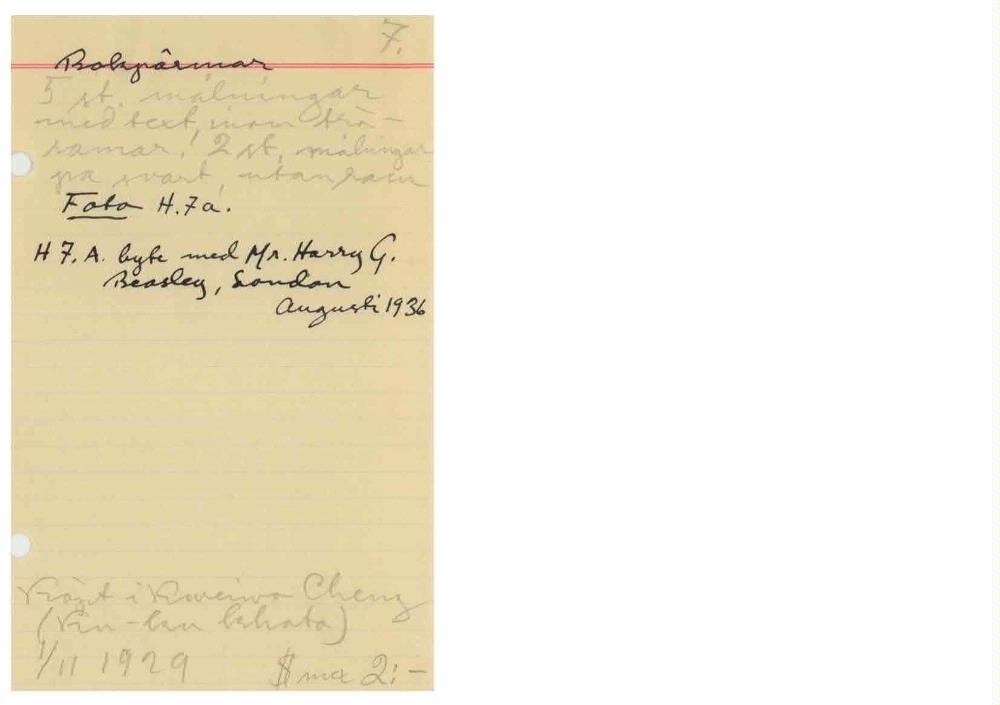 7.
Bokpärmar
5 st. målningar
med text, inom trä-
ramar, 2 st. målningar
på svart, utan ram
Foto H.7a.
H 7. A. byte med Mr. Harry G.
Beasley, London
Augusti 1936
Köpt i Kweiwa Cheng
1/11 1929 $ mex 2:-